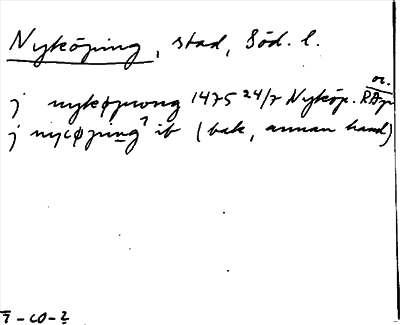 Nyköping, stad, Söd. l.
or.
j nykøpwng 1475 24/7 Nyköp. RAp
j nycøping? ib (bak, annan hand)